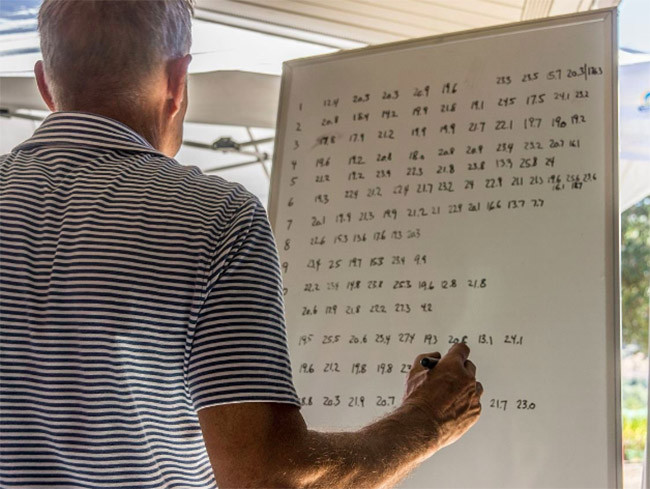 1 12.4 20.3 20.3 20.9 19.6 23.3 23.5 5.7 20.3
2 20.8 18.4 19.2 19.9 21.8 19.1 24.5 17.5 24.1 23.2
3 17.9 21.2 19.9 19.9 21.7 22.1 18.7 19.2
4 19.6 19.2 20.8 18.0 20.8 20.9 23.4 23.2 20.7 16.1
5 21.2 19.2 23.9 22.3 21.8 23.8 13.9 25.8 24
6 19.3 22.4 21.2 22.4 21.7 23.2 24 22.9 21.1 21.3 19.6 25.6 23.6
16.1 18.7
7 20.1 19.9 21.3 19.9 21.2 21 22.9 20.1 16.6 13.7 7.7
8 22.6 15.3 13.6 17.6 17.3 20.3
9 23.4 25 19.7 15.3 23.4 9.4
22.2 23.4 14.8 23.8 25.3 19.6 12.8 21.8
20.6 17.9 21.8 22.2 22.3 4.2
19.5 25.5 20.6 23.4 27.4 19.3 13.1 24.1
19.6 21.2 19.8 19.8
20.3 21.9 20.7 21.7 23.0